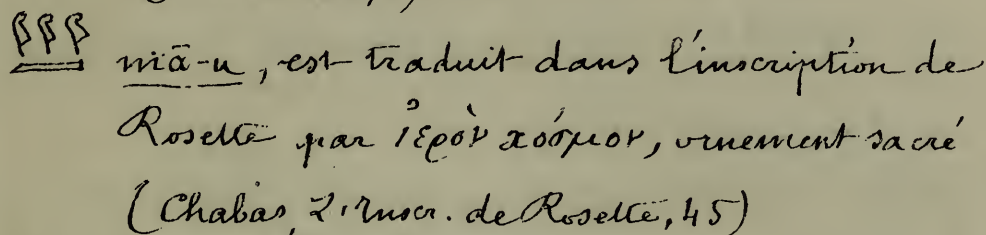 mā-u, est traduit dans l'inscription de
Rosette par ἱερὸν κόσμον, ornement sacré
(Chabas, L'Inscr. de Rosette, 45)